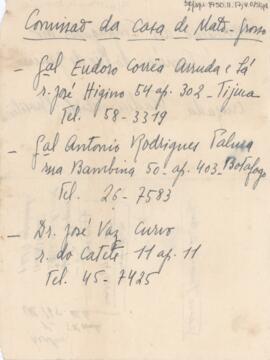 Comissão da casa de Mato-Grosso
— Gal Eudoro Corrêa Arruda e Sá
r. José Higino 54 ap. 302 - Tijuca
Tel. 58-3319
— Gal Antonio Rodrigues
rua Bambina 50 - ap. 403 - Botafogo
Tel. 26-7583
— Dr. José Vaz Curvo
r. do Catete 11 ap. 11
Tel. 45-7425